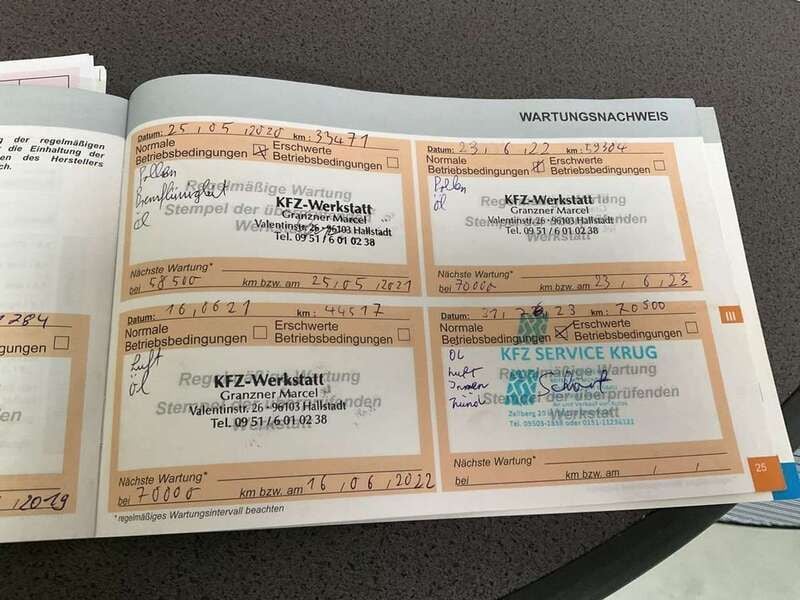 g der regelmäßigen
r die Einhaltung der
en des Herstellers
ch.
WARTUNGSNACHWEIS
Datum: 25 , 05 , 2020 km : 33471
Normale Betriebsbedingungen
Erschwerte Betriebsbedingungen
Pollen
Bremsflüssigkeit
Öl
Regelmäßige Wartung
Stempel der überprüfenden
Werkstatt
KFZ-Werkstatt
Granzner Marcel
Valentinstr. 26 - 96103 Hallstadt
Tel. 09 51 / 6 01 02 38
Nächste Wartung*
bei 58500 km bzw. am 25 , 05 , 2021
Datum: 23 , 6 , 22 km : 59304
Normale Betriebsbedingungen
Erschwerte Betriebsbedingungen
Pollen
Öl
Regelmäßige Wartung
Stempel der überprüfenden
Werkstatt
KFZ-Werkstatt
Granzner Marcel
Valentinstr. 26 - 96103 Hallstadt
Tel. 09 51 / 6 01 02 38
Nächste Wartung*
bei 70000 km bzw. am 23 , 6 , 23
Datum: 16 , 06 21 km : 44517
Normale Betriebsbedingungen
Erschwerte Betriebsbedingungen
Luft
Öl
Regelmäßige Wartung
Stempel der überprüfenden
Werkstatt
KFZ-Werkstatt
Granzner Marcel
Valentinstr. 26 - 96103 Hallstadt
Tel. 09 51 / 6 01 02 38
Nächste Wartung*
bei 70000 km bzw. am 16 , 06 , 2022
* regelmäßiges Wartungsintervall beachten
Datum: 31 23 km : 70500
Normale Betriebsbedingungen
Erschwerte Betriebsbedingungen
ÖL
Luft
Innen
Zünd
KFZ SERVICE KRUG
Regelmäßige Wartung
Stempel der überprüfenden
Werkstatt
An und Verkauf von Autos
Zellberg
Tel. 09503-1838 oder 0151-11236121
Nächste Wartung*
bei km bzw. am / /
III
25
284
ngungen
2019